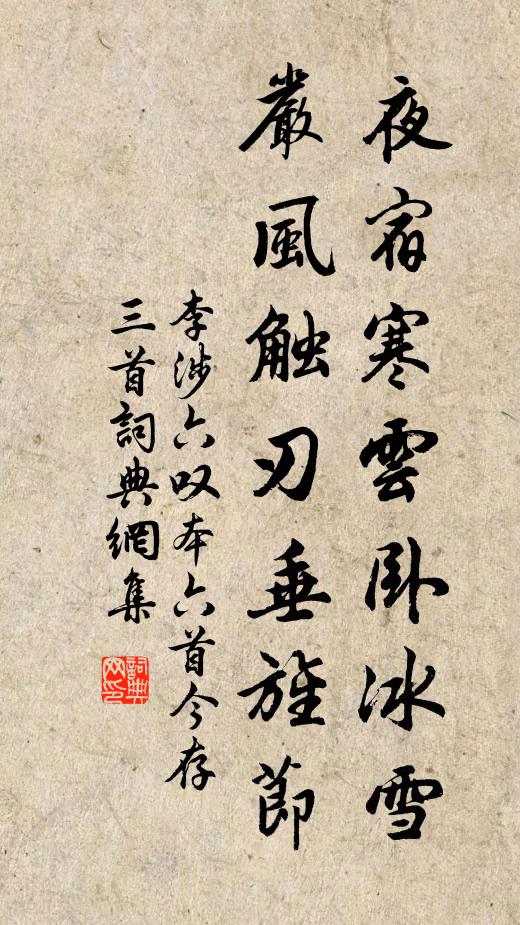 夜宿寒雲臥冰雪
嚴風触刃垂旌節
李涉六叹本六首今存
三首詞典網集
詞典网印